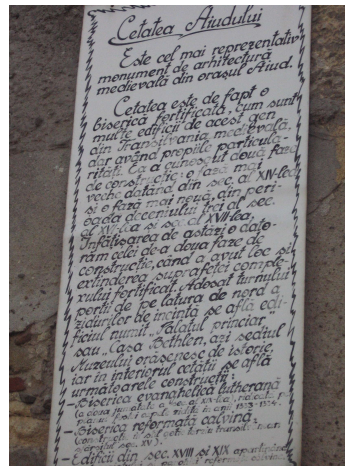 Cetatea Aiudului
Este cel mai reprezentativ
monument de arhitectură
medievală din orașul Aiud.
Cetatea este de fapt o
biserică fortificată, cum sunt
multe edificii de acest gen
din Transilvania medievală,
dar având propiile particula-
rități. Ea a cunoscut două faze
de construcție: o fază mai
veche datând din sec. al XIV-lea
și o fază mai nouă, din peri-
oada deceniului al sec.
al XVI-lea și sec al XVII-lea.
Înfățișarea de astăzi o dato-
răm celei de-a doua faze de
construcție, când a avut loc și
extinderea suprafeței comple-
xului fortificat. Adosat turnului
porții de pe latura de nord a
zidurilor de incintă se află edi-
ficiul numit „Palatul princiar”
sau „Casa Bethlen, azi sediul
Muzeului orășenesc de istorie,
iar în interiorul cetății se află
următoarele construcții:
- Biserica evanghelică lutherană
- Biserica reformată calvină.
- Edificii din sec. XVIII și XIX